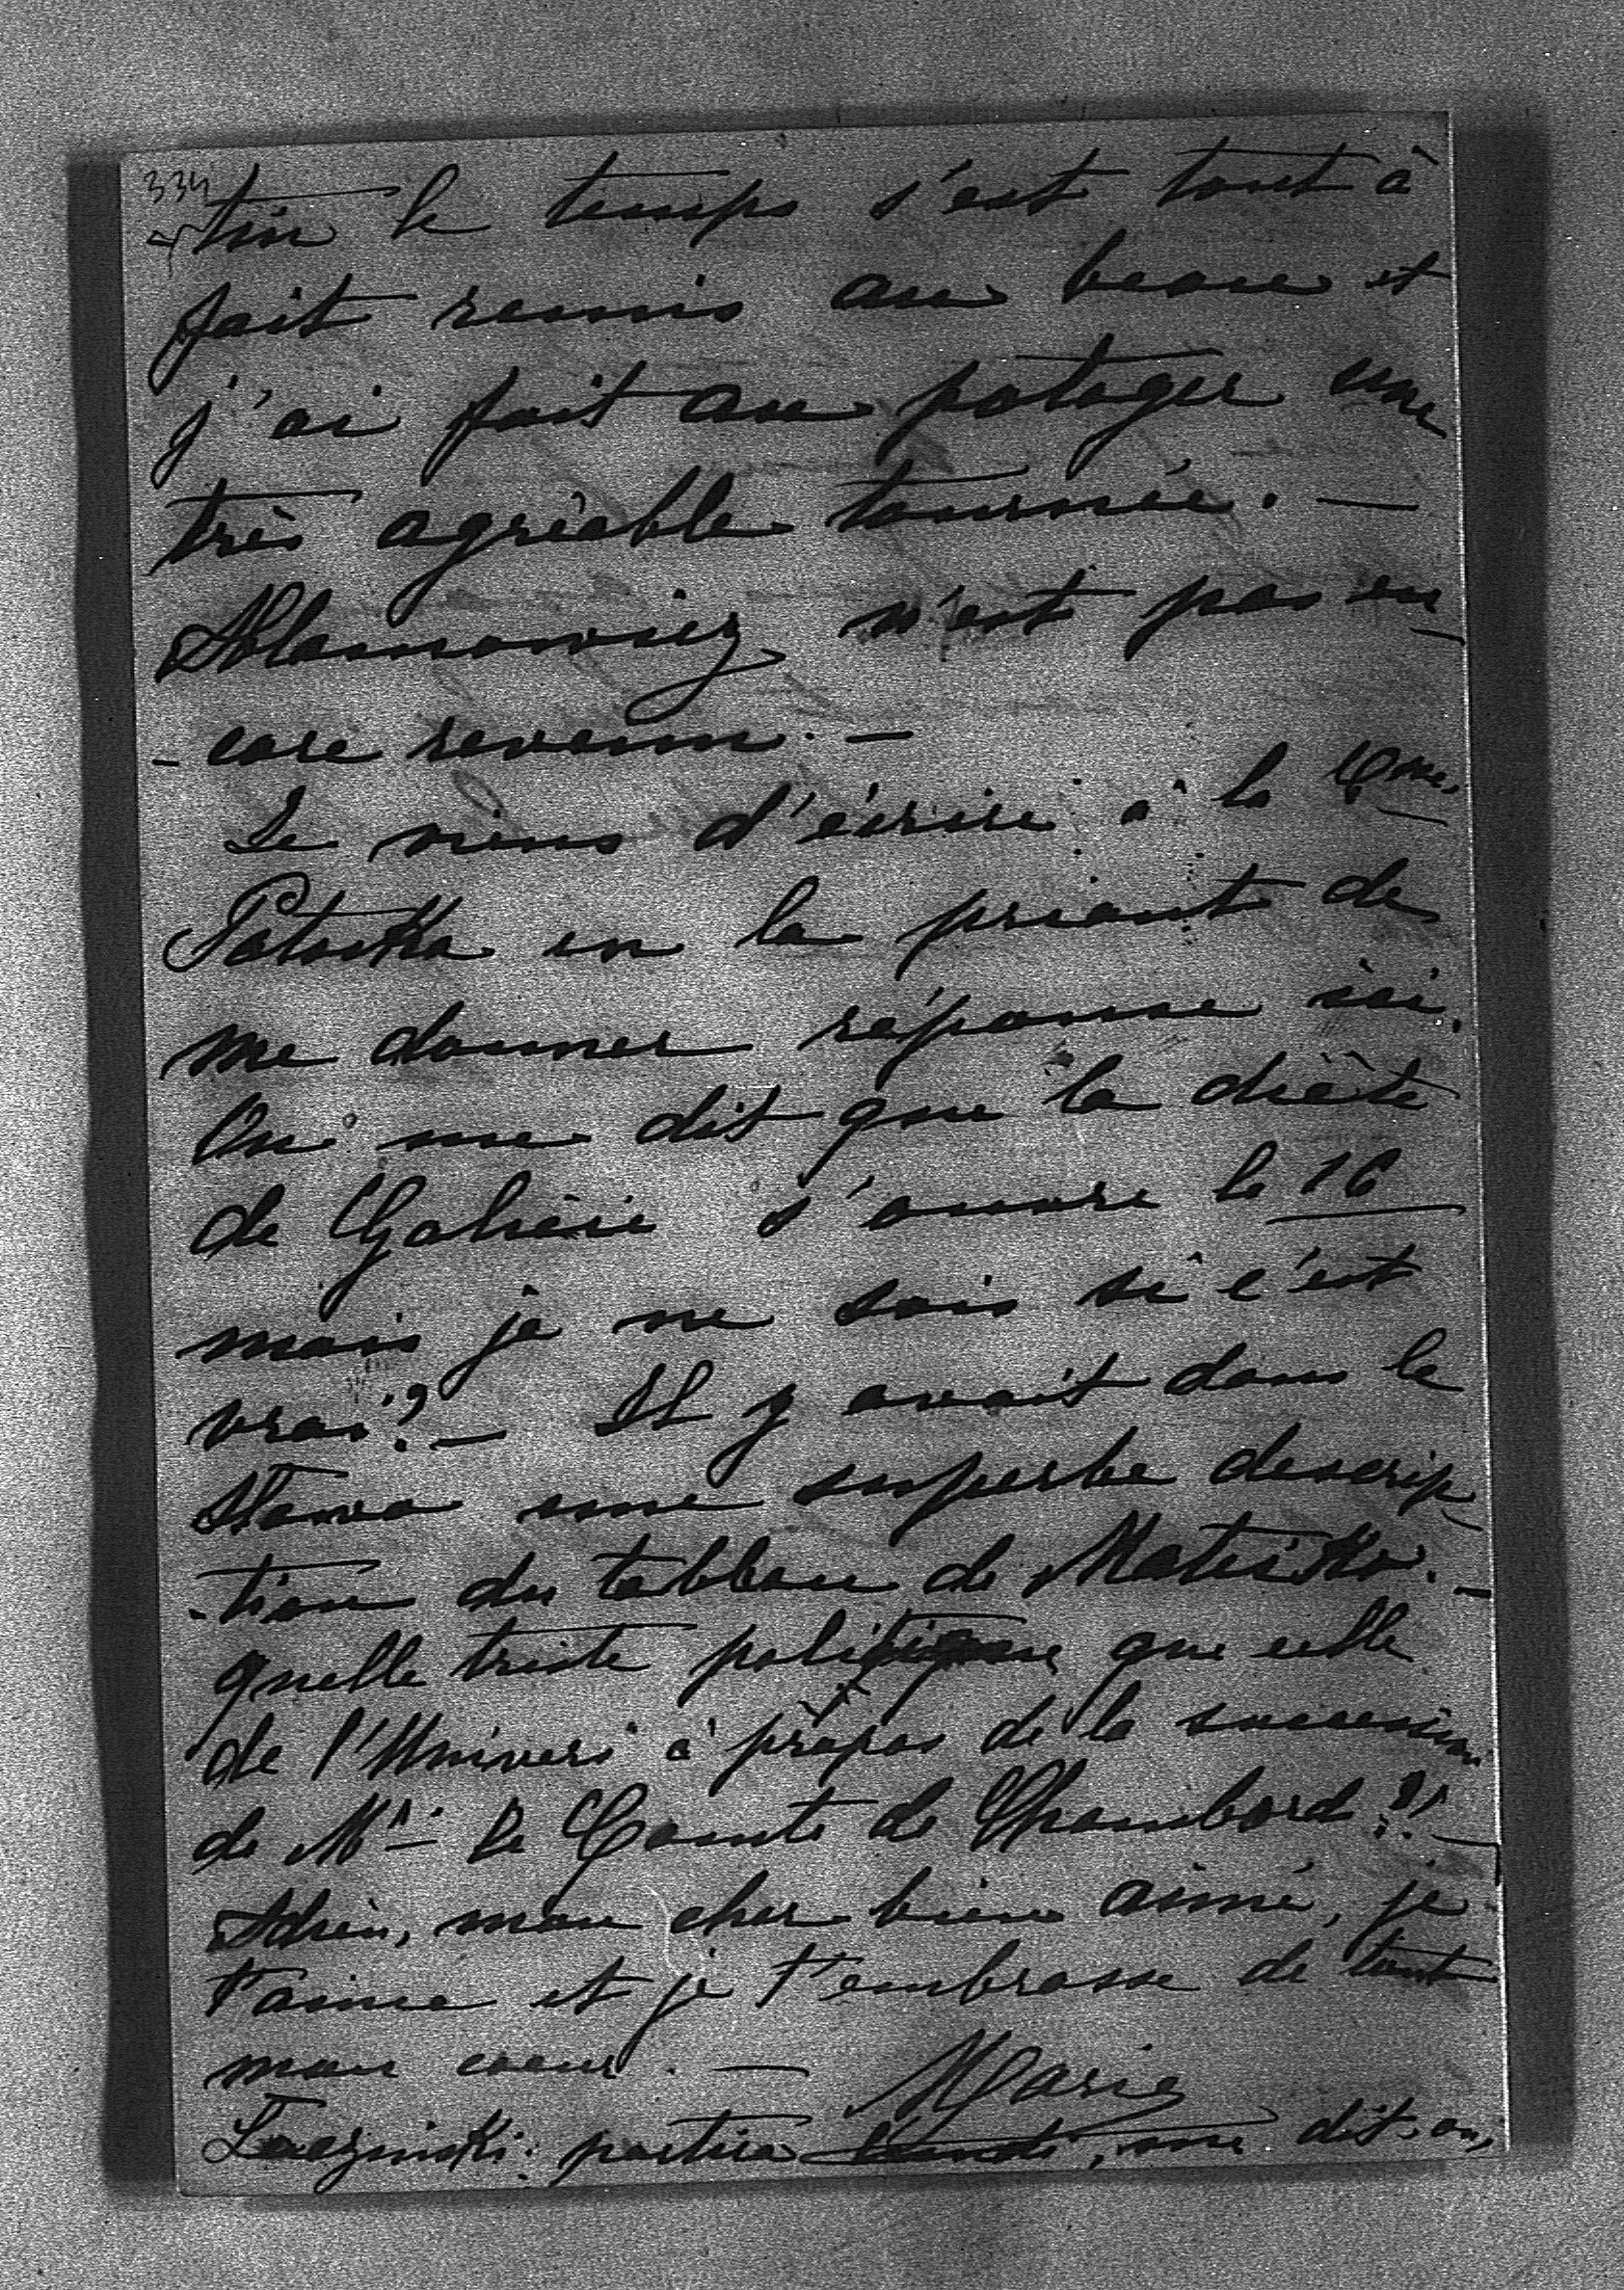 334
tin le temps s'est tout à
fait remis au beau et
j'ai fait au potager une
très agréable tournée. —
n'est pas en
- core revenu. —
Je viens d'écrire à la Csse
Potocka en la priant de
me donner réponse ici.
On me dit que la diète
de Galicie s'ouvre le 16
mais je ne sais si c'est
vrai? — Il y avait dans le
Słowo une superbe descrip
-tion du tableau de Mateiko. —
quelle triste politique que celle
de l'Univers à propos de la succession
de Mr. le Comte de Chambord?! —
Adieu, mon cher bien aimé, je
t'aime et je t'embrasse de tout
mon coeur. — Marie
partira me dit-on,